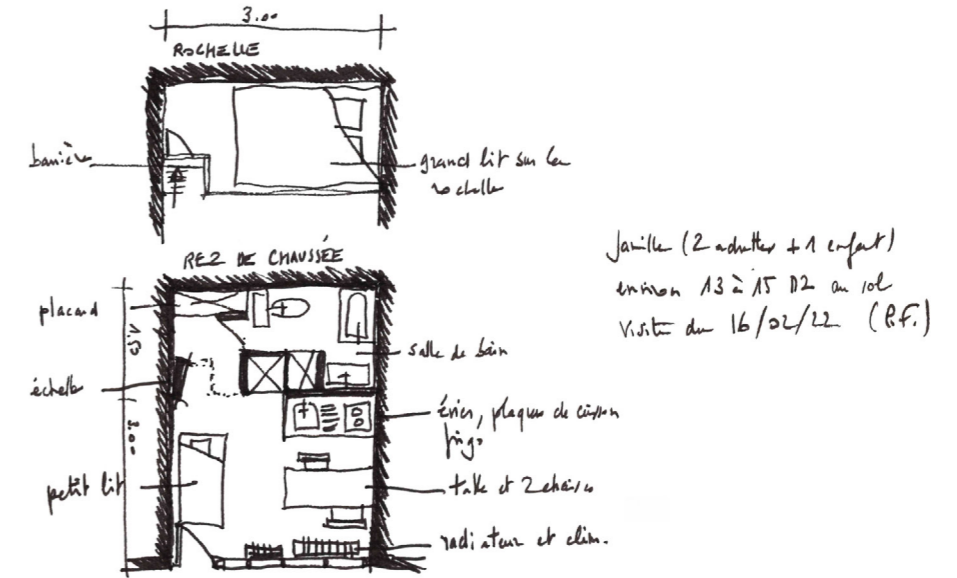 3.00
ROCHELLE
barrière
grand lit sur la
rochelle
REZ DE CHAUSSÉE
placard
1.50
salle de bain
échelle
évier, plaques de cuisson
frigo
3.00
petit lit
table et 2 chaises
radiateur et clim.
famille (2 adultes + 1 enfant)
environ 13 à 15 M2 au sol
visite du 16/02/22 (P.F.)